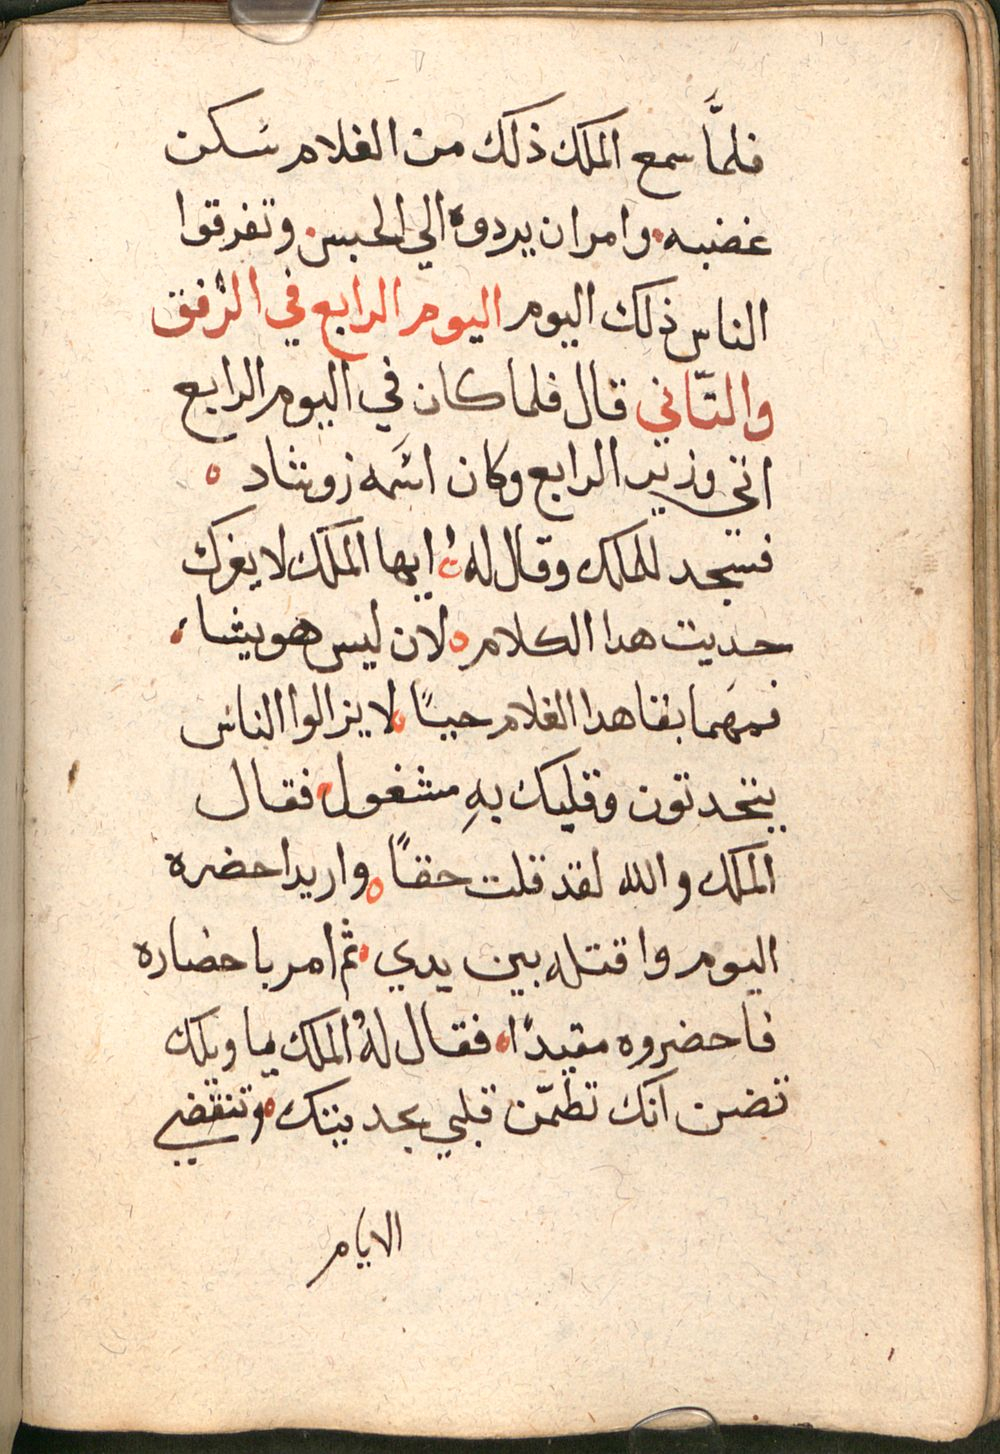 فلمَّا سمع الملك ذلك من الغلام سكن
غضبه وامر ان يردوه الي الحبس وتفرقوا
الناس ذلك اليوم اليوم الرابع في الرفق
والتّاني قال فلما كان في اليوم الرابع
اتي وزير الرابع وكان اسمه زوشاد
فسجد للملك وقال له ايها الملك لا يغرك
حديت هدا الكلام لان ليس هو يشا
فمهما بقا هدا الغلام حيـًا لا يزالوا الناس
يتحدتون وقلبك بهِ مشغول فقال
الملك والله لقد قلت حقـًا واريد احضره
اليوم واقتله بين يدي ثم امر باحضاره
فاحضروه مقيدًا فقال لهُ الملك يا ويلك
تضن انك تطمّن قلبي بحديتك وتنقضي
الايام